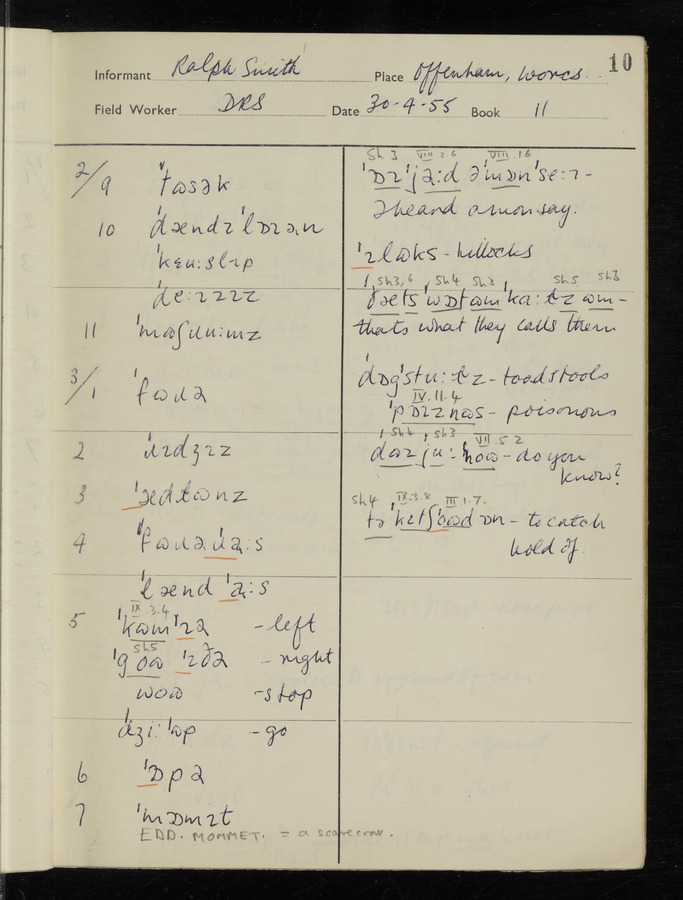 10
Informant Ralph Smith Place Offenham, Worcs
Field Worker DRS Date 30-4-55 Book 11
2/9 ˈtɷsək
10 ˈdændɪˈlɒɪən
ˈkɛuːslɪp
ˈdeːɪzɪz
11 ˈmɷʃɹuːmz
3/1 ˈfɷɹə
2 ˈɹɪdʒɪz
3 ˈædlɷnz
4 ˈfɷɹəˈɹəːs
ˈlænd ˈəːs
IX.3.4
5 ˈkɷmˈɪə - left
Sh5
ˈgɔɷ ˈɪðə - right
wɔɷ - stop
ˈdʒiːˈɷp - go
6 ˈɒpə
7 ˈmɒmɪt
EDD. MOMMET. = a scarecrow.
Sh 3 VIII.2.6 VIII.16
ˈɒɪˈjəːd əˈmɒnˈseːɪ -
I heard a mon say.
ˈɪlɷks - hillocks
Sh3,6 Sh4 Sh3 Sh5 Sh3
ˈðæts wɒt ɷm ˈkaːlz ɷm -
thats what they calls them
ˈdɒgstuːlz - toadstools
IV.11.4
ˈpɒɪznɷs - poisonous
Sh4 Sh3 VII.5.2
dɷz juː ˈnɔɷ - do you
know?
Sh4 IX.3.8 III.1.7.
tə ˈkɛtʃ ˈɔɷd ɒn - to catch
hold of.